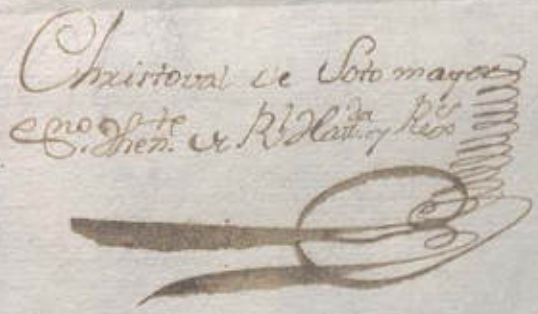 Christoval de Sotomayor
esno. Then.te de Rl. Haz.da y Rexos